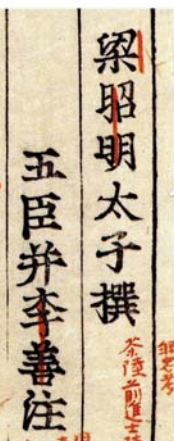 梁昭明太子撰
五臣并李善注
茶陵前進士陳